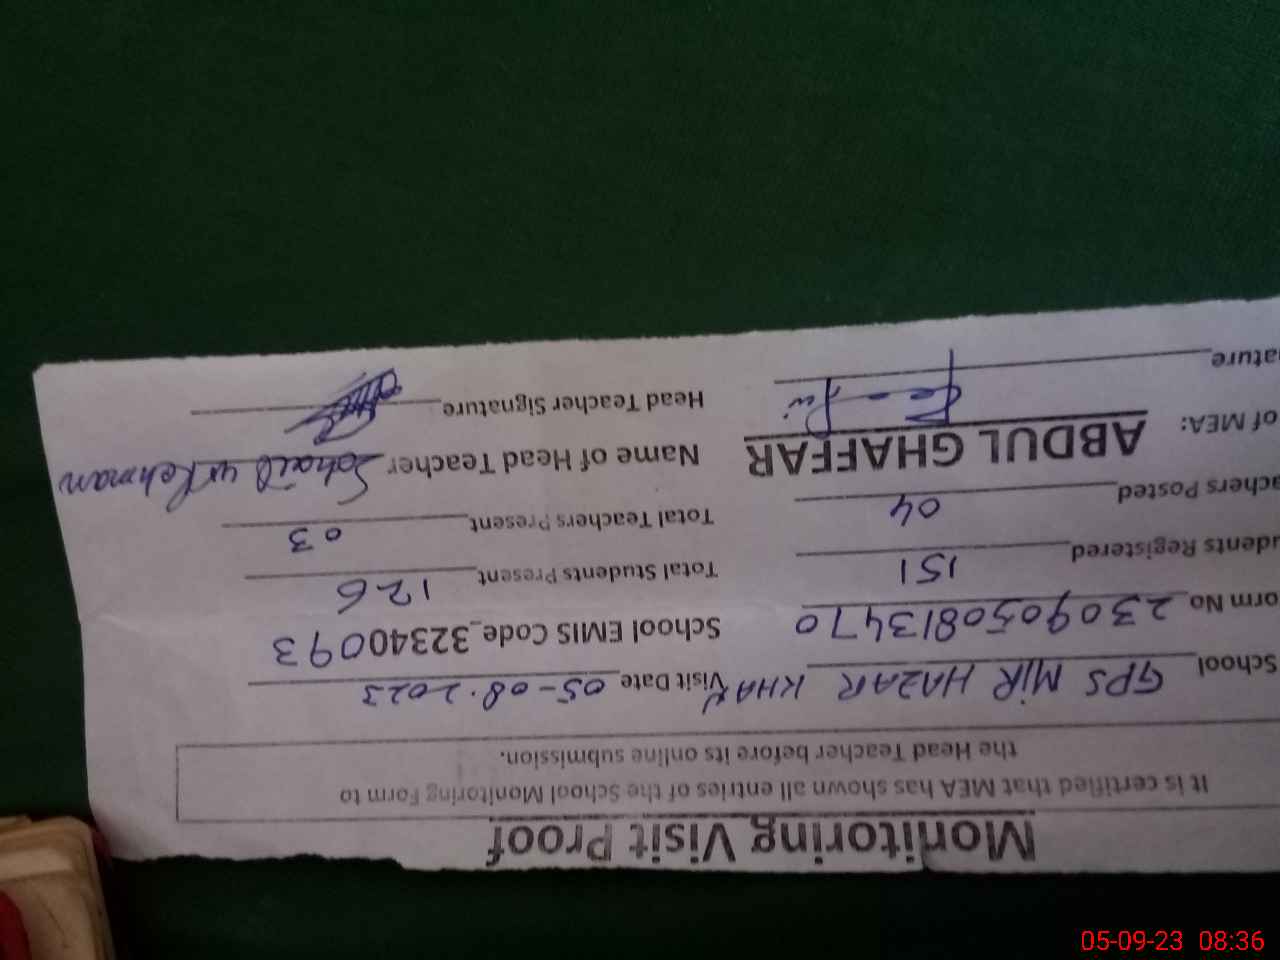 Monitoring Visit Proof
It is certified that MEA has shown all entries of the School Monitoring Form to
the Head Teacher before its online submission.
School GPS MIR HAZAR KHAN Visit Date 05-08.2023
orm No 2309050813470 School EMIS Code_32340093
dents Registered 151 Total Students Present 126
achers Posted 04 Total Teachers Present 03
of MEA: ABDUL GHAFFAR Name of Head Teacher Sohail ur Rehman
ature Head Teacher Signature
05-09-23 08:36